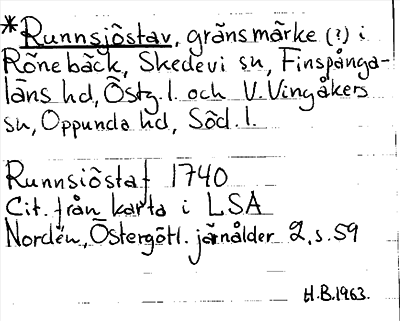 *Runnsjöstav, gränsmärke (?) i
Rönebäck, Skedevi sn, Finspånga-
läns hd, Östg. l. och V. Vingåkers
sn, Oppunda hd, Söd. l.
Runnsiöstaf 1740
Cit. från karta i LSA
Nordén, Östergötl. järnålder 2, s. 59
H.B. 1963.